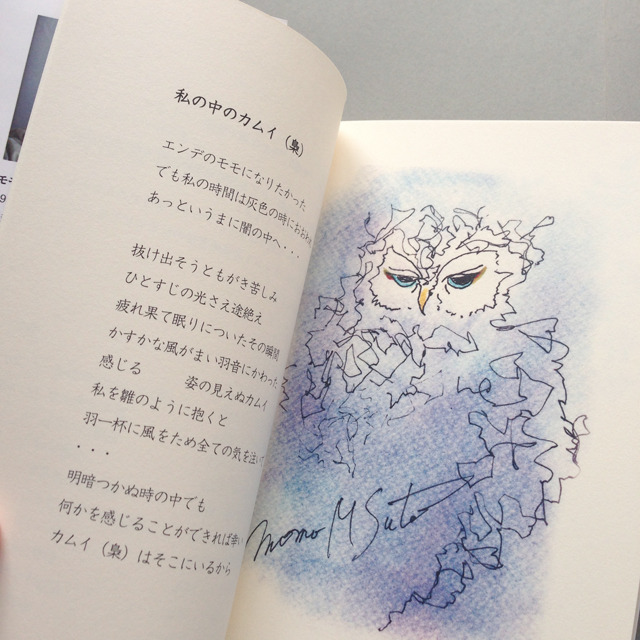 私の中のカムイ（梟）
エンデのモモになりたかった
でも私の時間は灰色の時におおわれ
あっというまに闇の中へ・・・
抜け出そうともがき苦しみ
ひとすじの光さえ途絶え
疲れ果て眠りについたその瞬間
かすかな風がまい羽音にかわった
感じる　　姿の見えぬカムイ
私を雛のように抱くと
羽一杯に風をため全ての気を注い
・・・
明暗つかぬ時の中でも
何かを感じることができれば幸い
カムイ（梟）はそこにいるから
momo M Sato